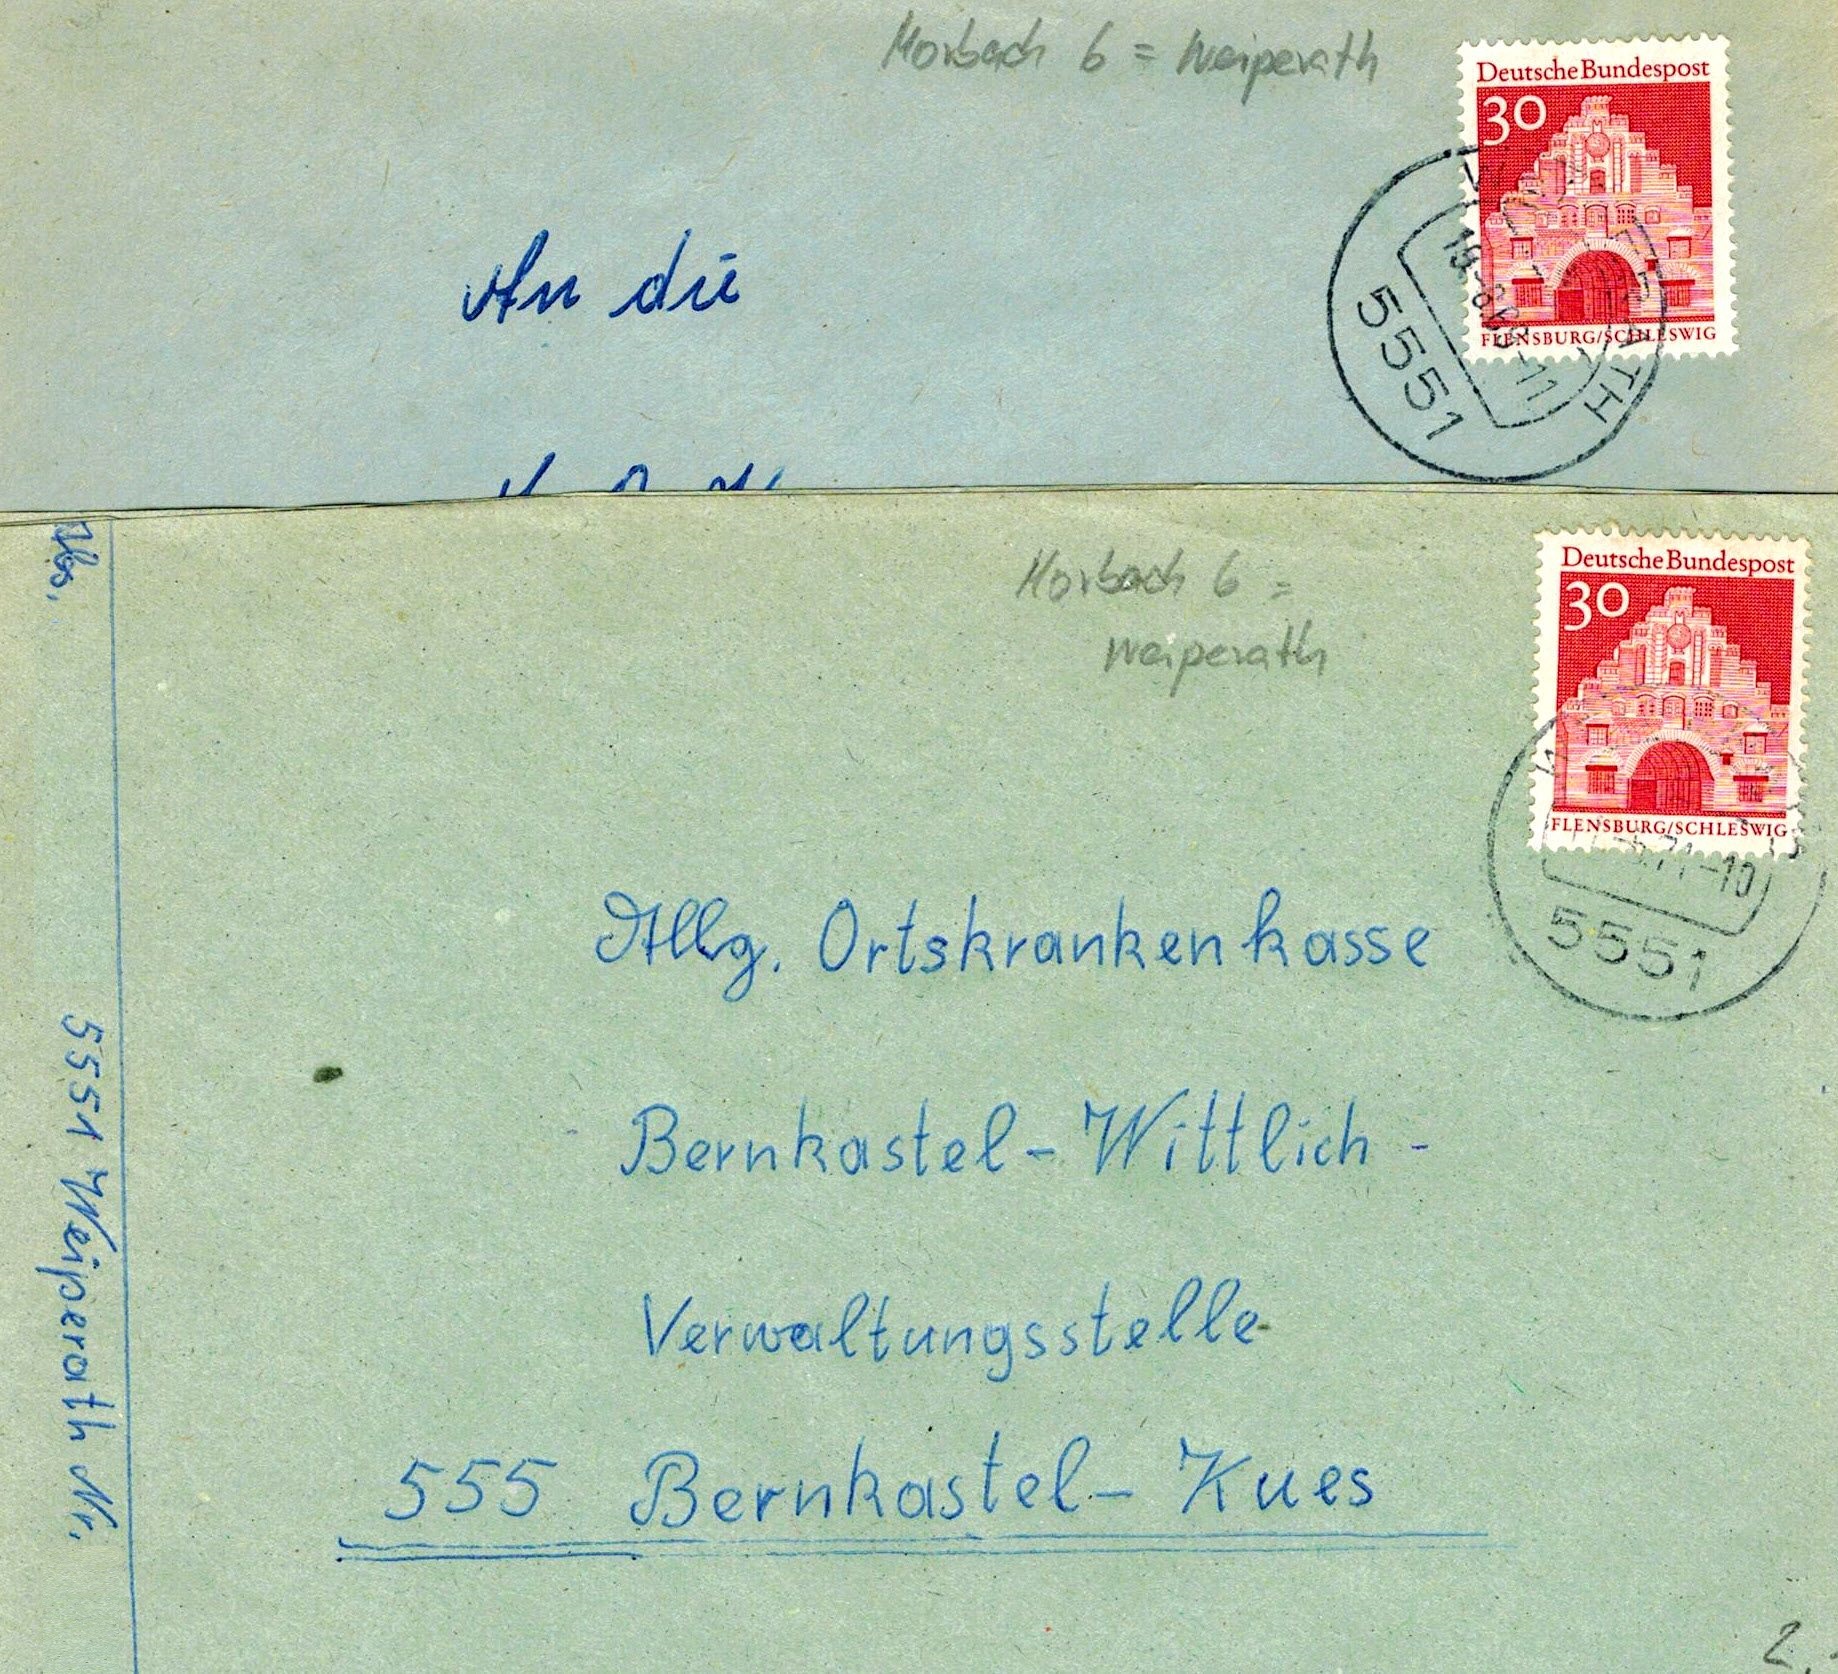 Morbach 6 = Weiperath
Deutsche Bundespost
30
FLENSBURG/SCHLESWIG
5551
An die
Abs.
5551 Weiperath Nr.
Morbach 6 =
Weiperath
Deutsche Bundespost
30
FLENSBURG/SCHLESWIG
71-10
5551
Allg. Ortskrankenkasse
Bernkastel-Wittlich-
Verwaltungsstelle
555 Bernkastel-Kues